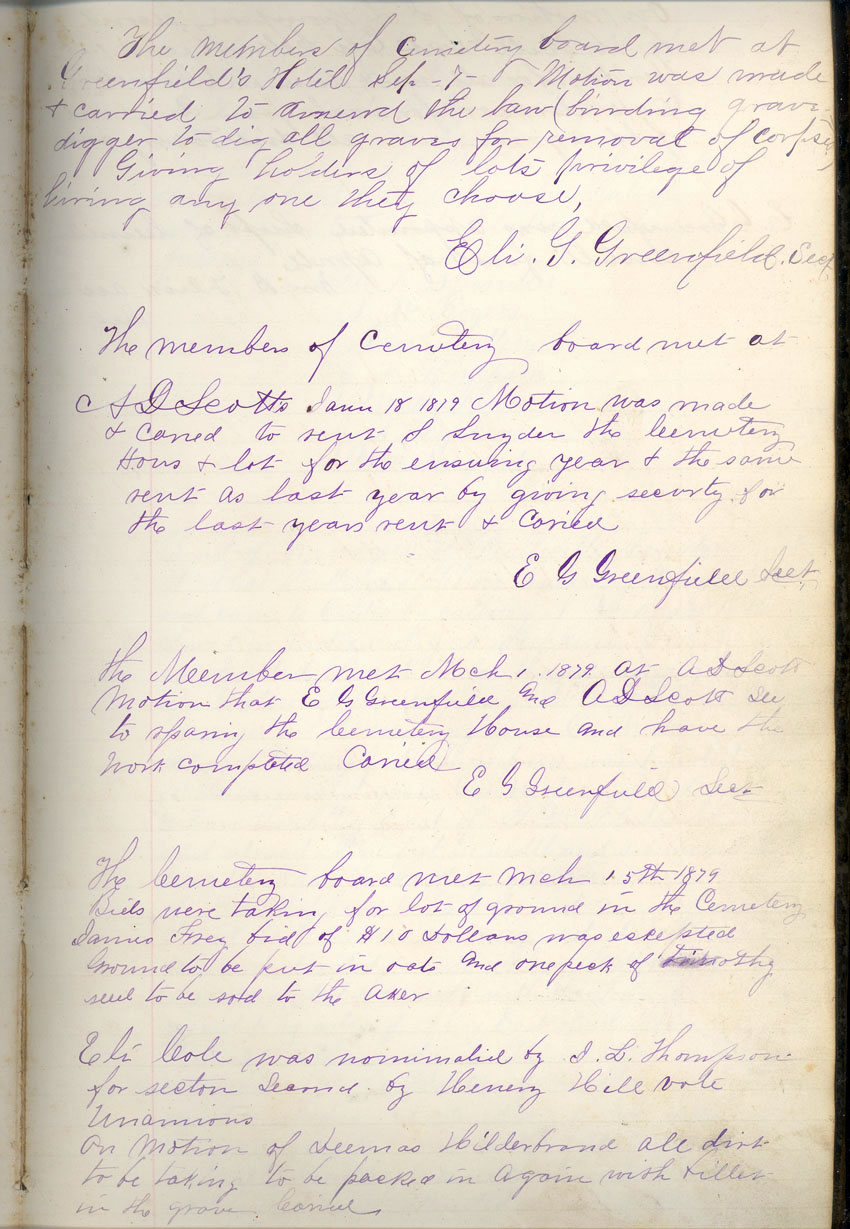 The members of cemetery board met at
Greenfield's Hotel Sep - 7 - Motion was made
& carried to amend the law (binding grave
digger to dig all graves for removal of corpses)
Giving holders of lots privilege of
hiring any one they choose,
Eli. G. Greenfield. Sect
The members of Cemetery board met at
A D Scotts Janu 18 1879 Motion was made
& caried to rent J Snyder the Cemetery
Hous & lot for the ensuing year & the same
rent as last year by giving securty for
the last years rent & Caried
E G Greenfield Sect
the Meember met Mch 1. 1879 at A D Scott
Motion that E G Greenfield and A D Scott See
to reparing the Cemetery House and have the
work completed Caried
E G Greenfield Sect
The Cemetery board met Mch 15th 1879
Bids were taking for lot of ground in the Cemetery
James Frey bid of $10 Dollars was eskepted
Ground to be put in oats and one peck of timothy
seed to be sod to the Aker
Eli Cole was nominatid by J. L. Thompson
for secton Second by Henery Hill vote
Unannous
On Motion of Deemas Hilderbrand all dirt
to be taking to be packed in again with
in the grave Caried